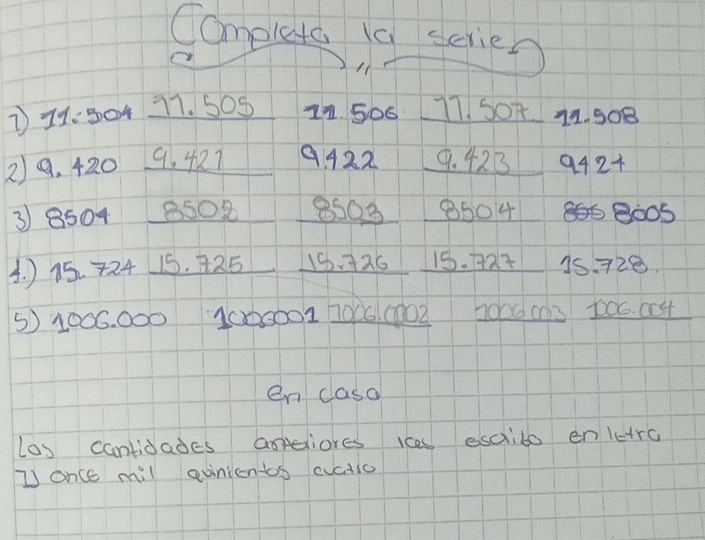 Completa la series
1) 11.504 11.505 11 506 11.507 11.508
2) 9.420 9.421 9.422 9.423 9424
3) 8504 8502 8503 8504 8005
4.) 15.724 15.725 15.726 15.727 15.728.
5) 1006.000 1006001 1006.0002 1006003 1006.004
en casa
Las cantidades anteriores las escribo en letra
1) once mil quinientos cuatro